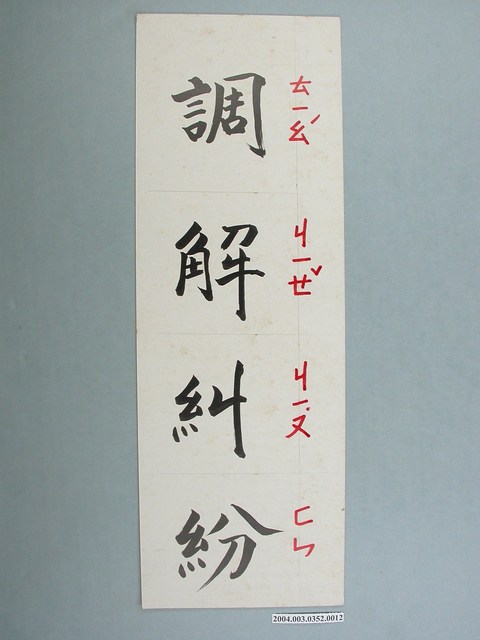 調解糾紛
ㄊㄧㄠˊ
ㄐㄧㄝˇ
ㄐㄧㄡ
ㄈㄣ
2004.003.0352.0012